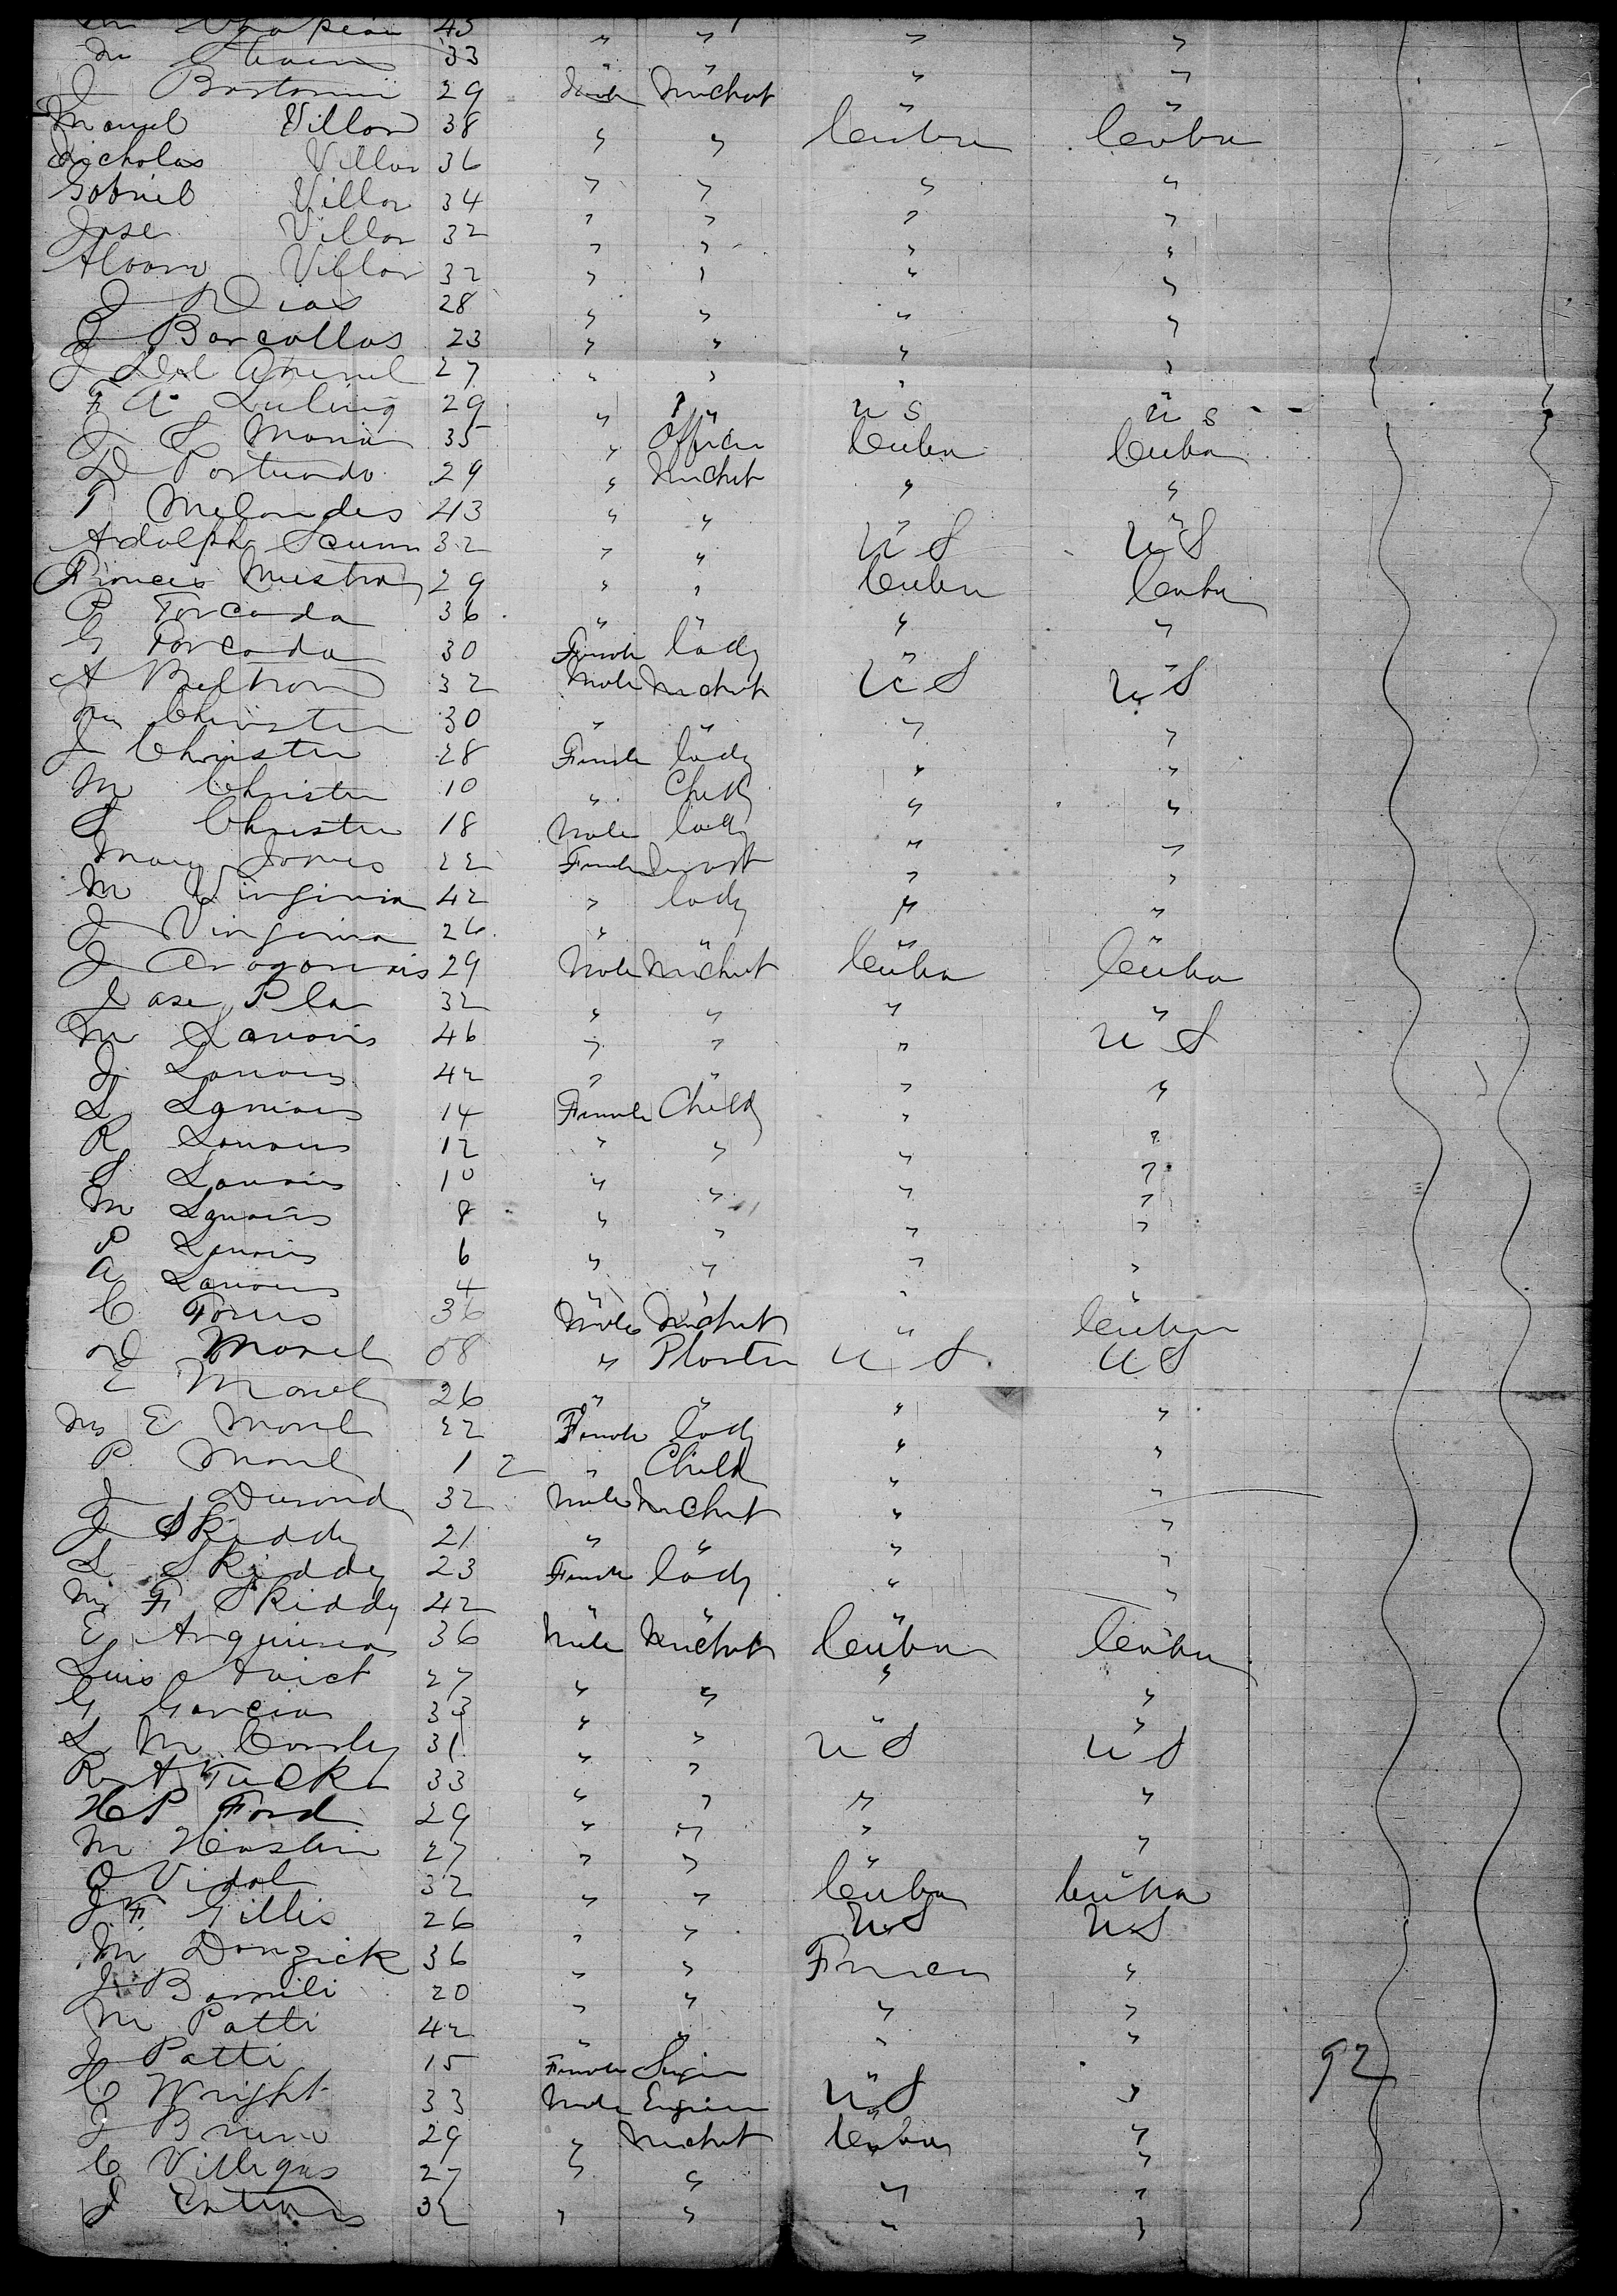 43 " " " "
33 " " " "
J 29 Male Michat " "
Manuel Villar 38 " " Cuba Cuba
Nicholas Villar 36 " " " "
Gabriel Villar 34 " " " "
Jose Villar 32 " " " "
Villar 32 " " " "
J Dias 28 " " " "
J Barcallas 23 " " " "
J Del 27 " " " "
F A Luling 29 " " U S U S
J S Maria 35 " Officer Cuba Cuba
D Portuondo 29 " Michat " "
P Melandes 43 " " " "
Adolph 32 " " U S U S
Francis 29 " " Cuba Cuba
P Torcada 36 " " " "
G Torcada 30 Female lady " "
A Beltran 32 Male Michat U S U S
Christer 30 " " " "
J Christer 28 Female lady " "
M Christer 10 " Child " "
S Christer 18 Male lady " "
Mary Jones 22 Female " "
M Virginia 42 " lady " "
J Virginia 26 " " " "
J 29 Male Michat Cuba Cuba
Jase Pla 32 " " " "
M Lanois 46 " " " U S
J Lanois 42 " " " "
L Lanois 14 Female Child " "
R Lanois 12 " " " "
S Lanois 10 " " " "
M Lanois 8 " " " "
P Lanois 6 " " " "
A Lanois 4 " " " "
C Torres 36 Male Michat " Cuba
D Morel 58 " Planter U S U S
E Morel 26 " " " "
Mrs E Morel 22 Female lady " "
P Morel 12 " Child " "
J Durand 32 Male Michat " "
J Skiddy 21 " " " "
L Skiddy 23 Female lady " "
Mrs F Skiddy 42 " " " "
E 36 Male Michat Cuba Cuba
Luis 27 " " " "
G Garcia 33 " " " "
L M 31 " " U S U S
R A Tucker 33 " " " "
H P Ford 29 " " " "
M 27 " " " "
O Vidal 32 " " Cuba Cuba
J F Gillis 26 " " U S U S
M Danzick 36 " " France "
J 20 " " " "
M Patti 42 " " " "
J Patti 15 Female " "
92
C Wright 33 Male Engineer U S "
J Bruno 29 " Michat Cuba "
C Villegas 27 " " " "
J 32 " " " "